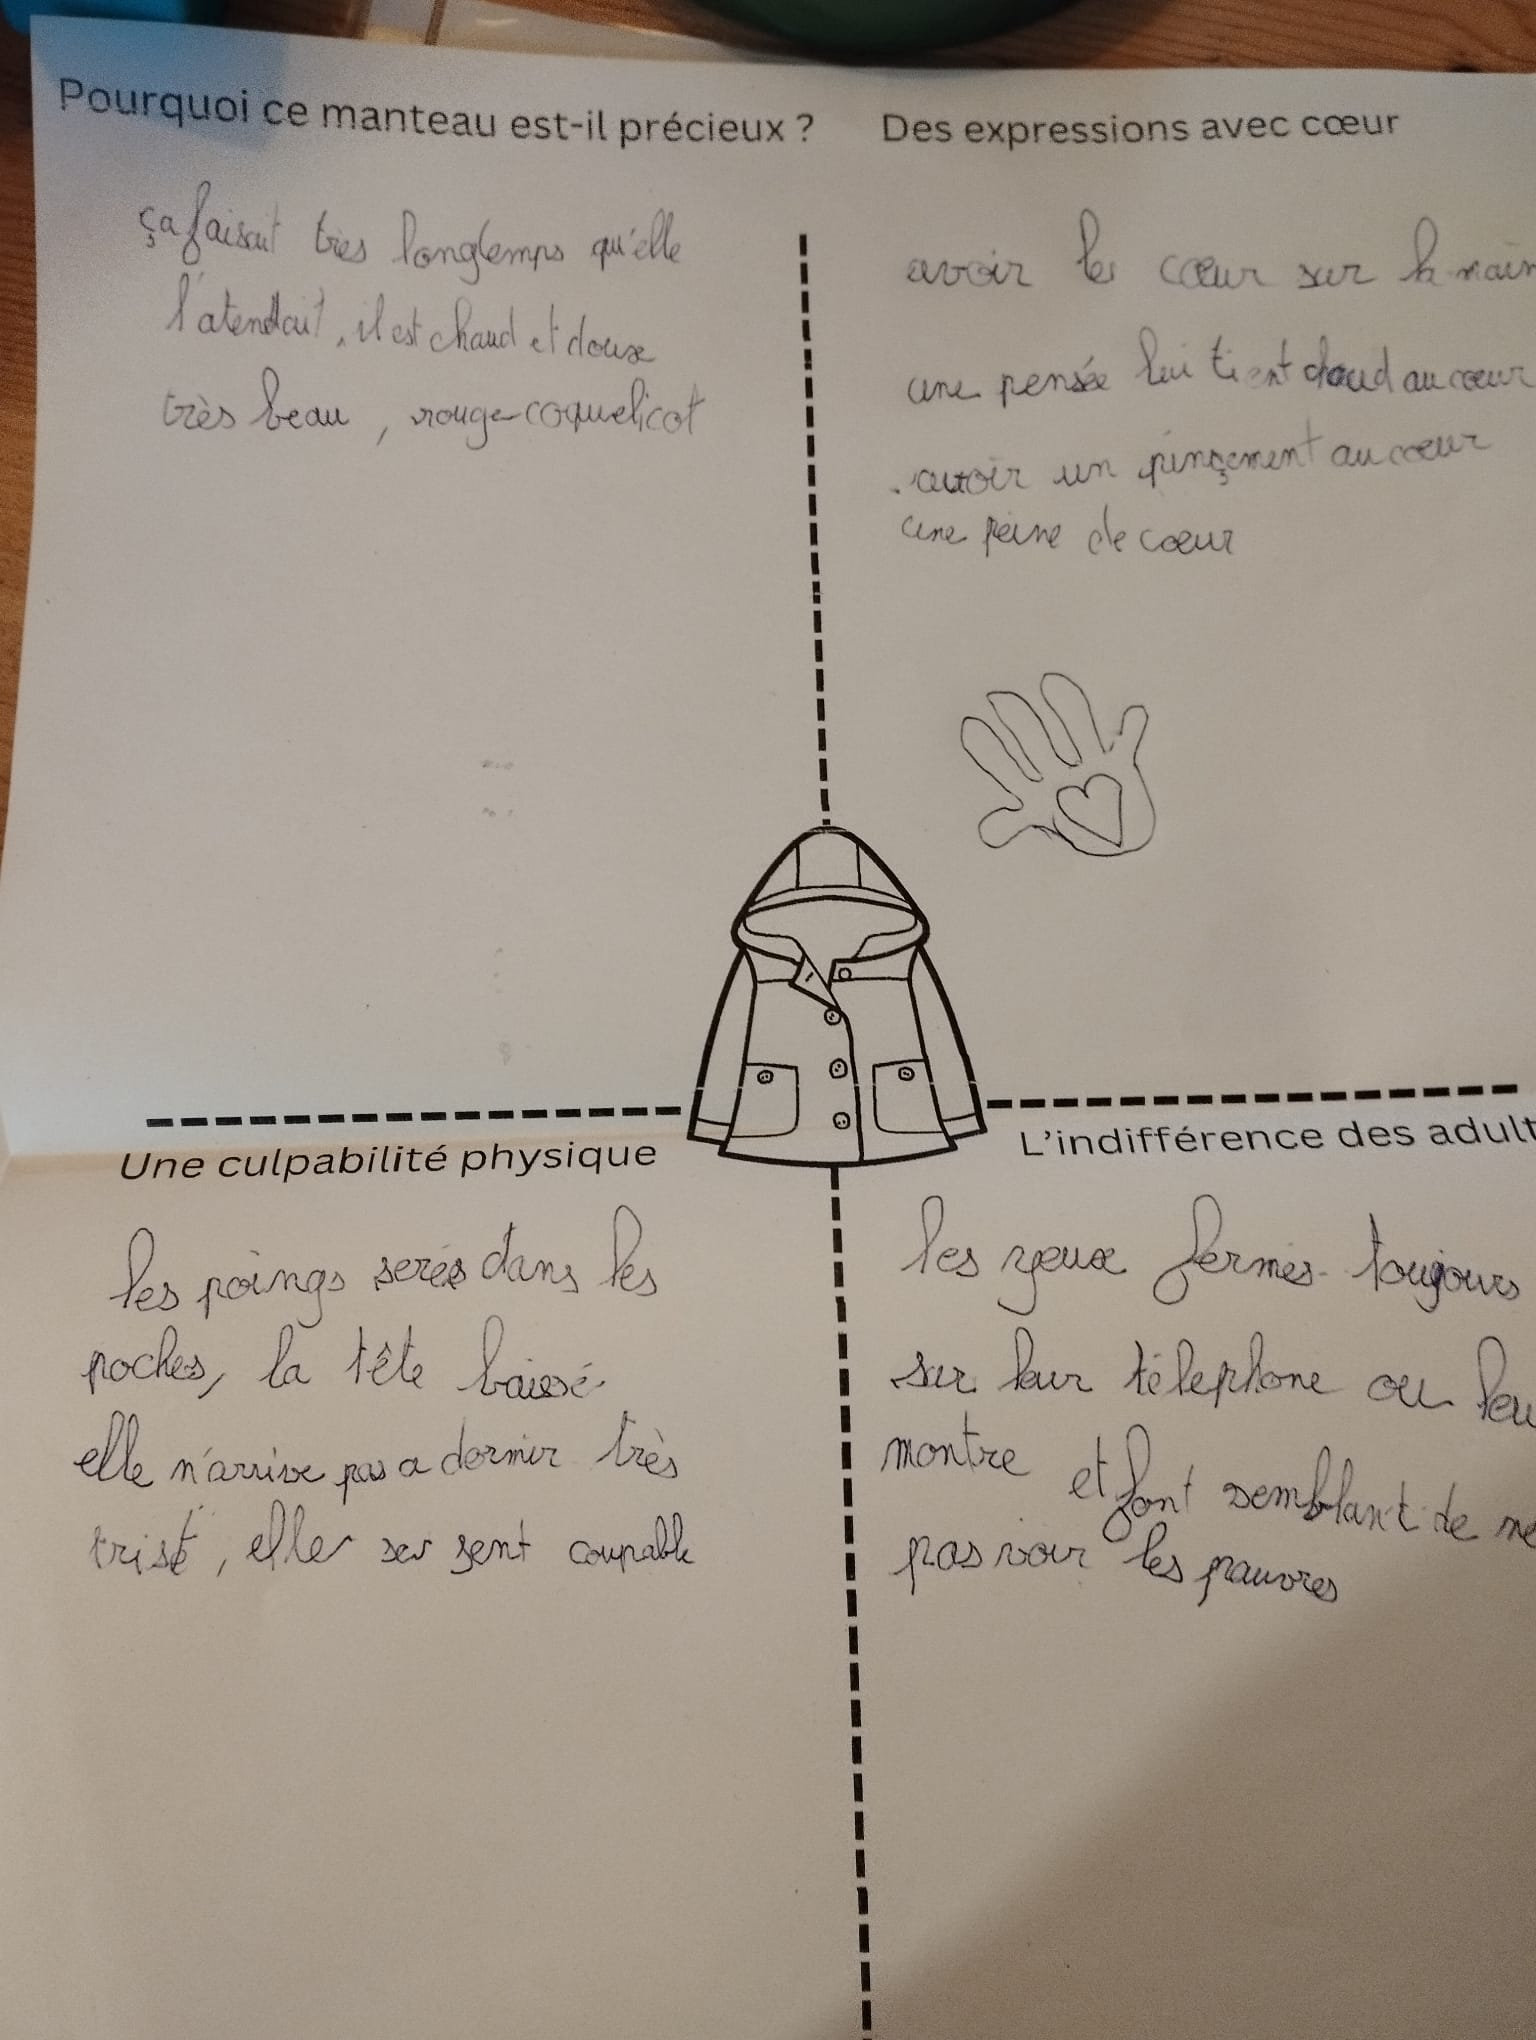 Pourquoi ce manteau est-il précieux ?
ça faisait tres longtemps qu'elle
l'atendait, il est chaud et doux
très beau, rouge coquelicot
Des expressions avec cœur
avoir le cœur sur la main
une pensée lui tient chaud au cœur
avoir un pinçement au cœur
une peine de cœur
Une culpabilité physique
les poings serés dans les
poches, la tête baissé
elle n'arrive pas a dormir très
triste, elle se sent coupable
L'indifférence des adult
les yeux fermés toujours
sur leur télephone ou leu
montre et font semblant de ne
pas voir les pauvres